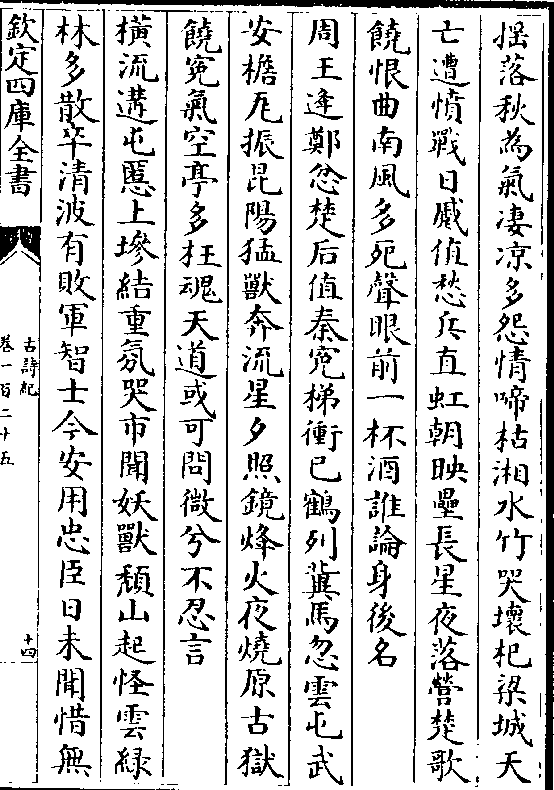 揺落秋為氣凄凉多怨情啼枯湘水竹哭壊杞梁城天
亡遭憤戰日蹙值愁兵直虹朝映壘長星夜落營楚歌
饒恨曲南風多死聲眼前一杯酒誰論身後名
周王逢鄭忿楚后值秦寃梯衝已鶴列冀馬忽雲屯武
安檐瓦振昆陽猛獸奔流星夕照鏡烽火夜燒原古獄
饒寃氣空亭多枉魂天道或可問微兮不忍言
橫流遘屯慝上墋結重氛哭市聞妖獸頽山起怪雲緑
林多散卒清波有敗軍智士今安用忠臣日未聞惜無
欽定四庫全書
古詩紀
卷一百二十五
十四